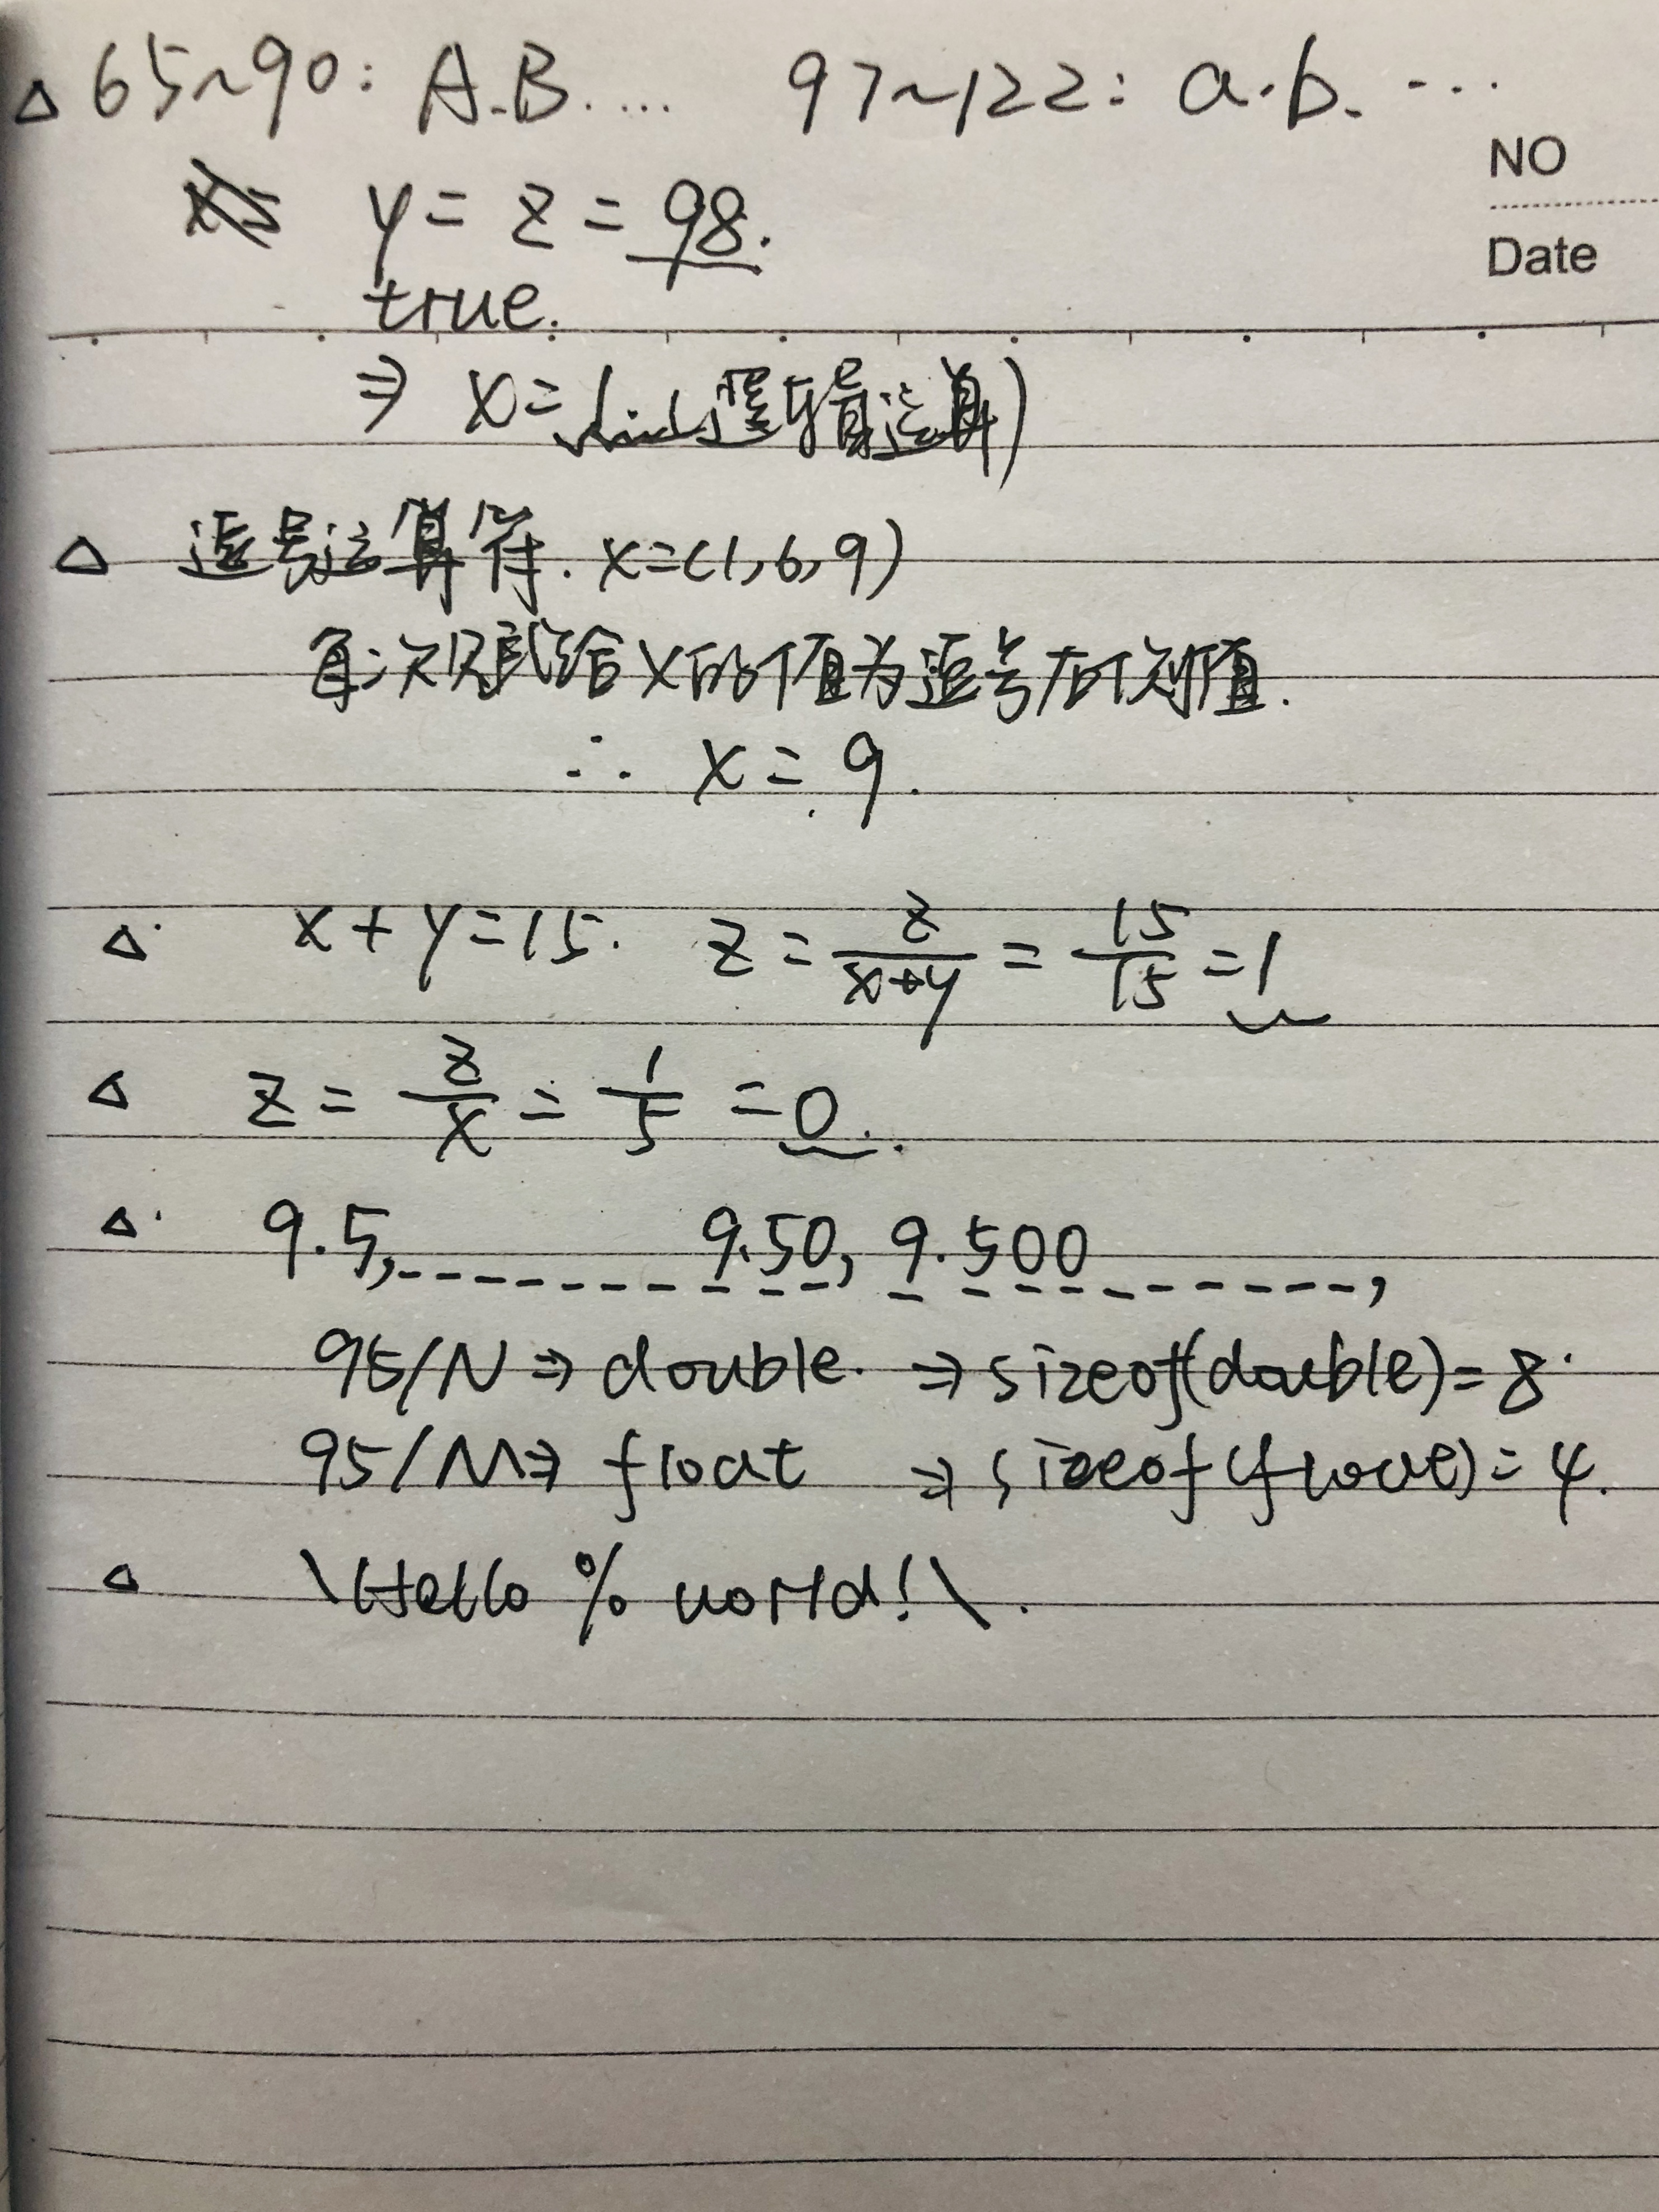 △ 65~90: A.B..... 97~122: a.b. ...
NO
y = z = 98.
Date
true.
⇒ x=1.（逻辑运算）
△ 逗号运算符. x=(1,6,9)
每次只赋给x的值为逗号右侧值.
∴ x = 9.
△ x+y=15. z = z/(x+y) = 15/15 = 1
△ z = z/x = 1/5 = 0.
△ 9.5,-------9.50, 9.500------,
95/N ⇒ double. ⇒ sizeof(double)=8.
95/M ⇒ float ⇒ sizeof(float)=4.
△ \Hello % world!\.